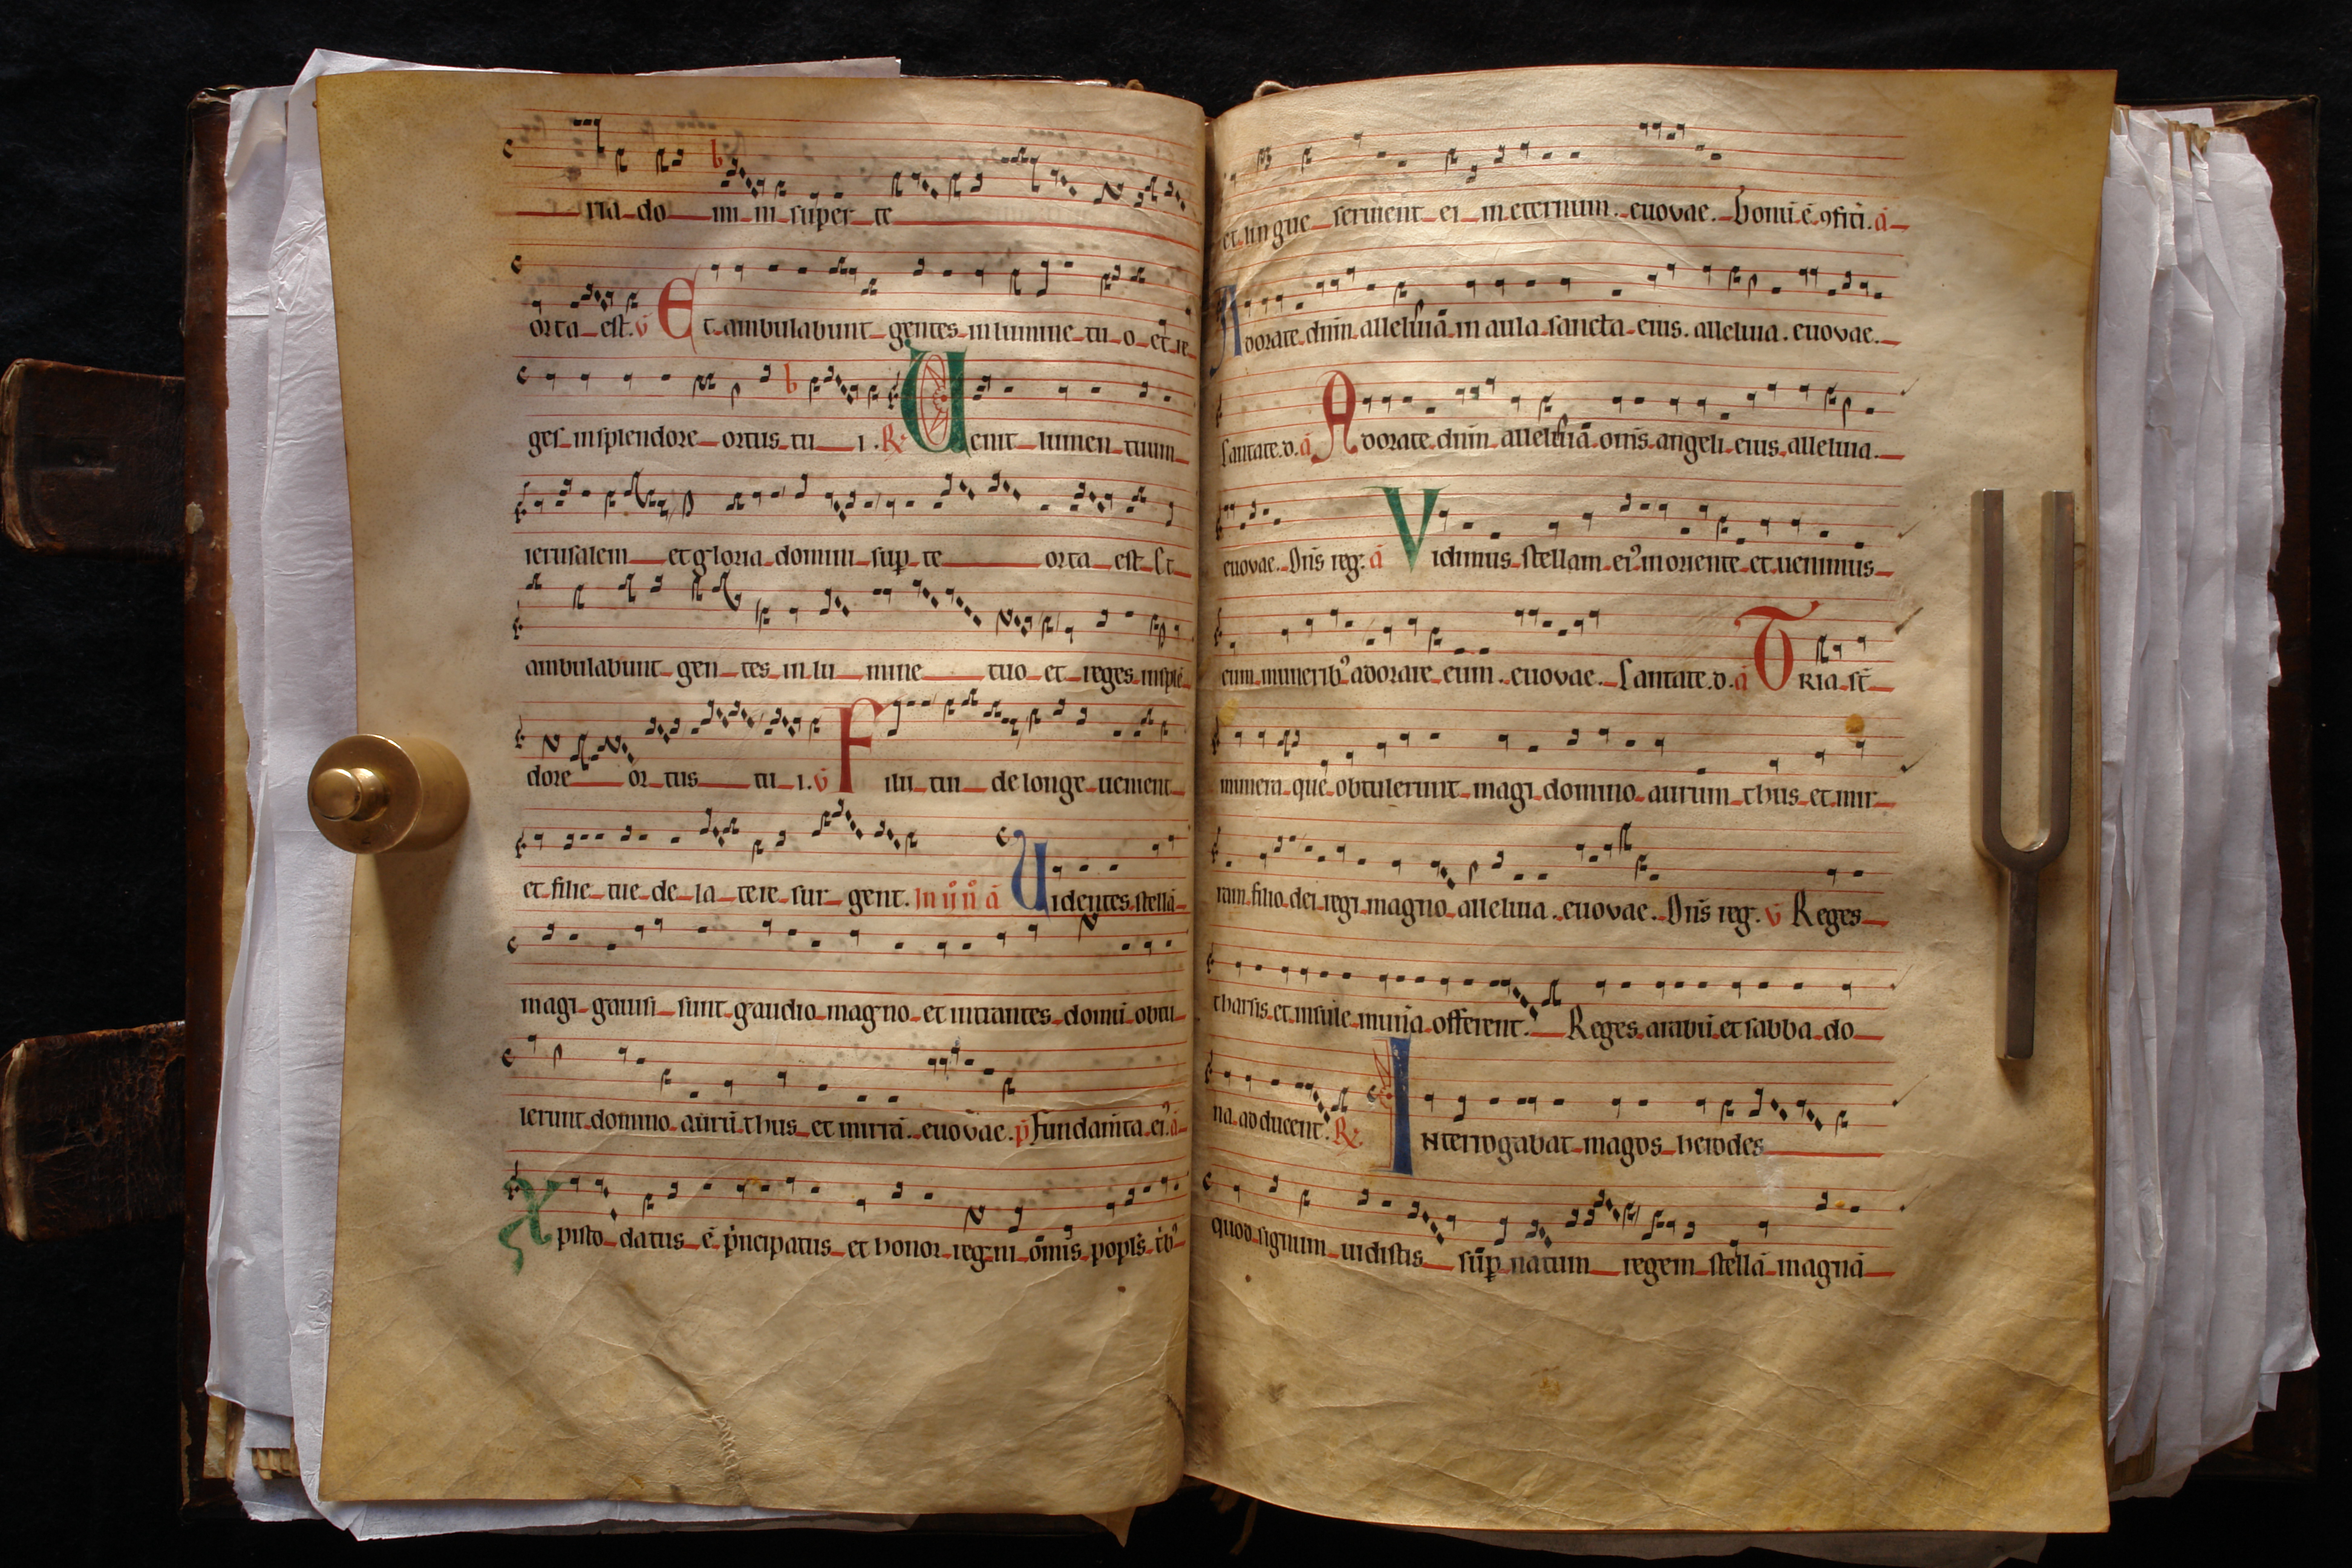 ria do mi ni super te
orta est. v̄ Et ambulabunt gentes in lumine tu o et re
ges in splendore ortus tu i. R̷ Uenit lumen tuum
ierusalem et gloria domini sup̱ te orta est Et
ambulabunt gen tes in lu mine tuo et reges insplē
dore or tus tu i. v̄ Filii tui de longe uenient
et filie tue de la tere sur gent. In ā Uidentes stellā
magi gauisi sunt gaudio magno et intrantes domū obtu
lerunt domino aurū thus et mirrā. euovae. p̄ Fundam̄ta eiꝰ ā
Xpisto datus ē p̄ncipatus et honor regni om̄is popl̄s
et lingue seruient ei in eternum. euovae. Bonū ē ꝯfiti. ā
Adorate dn̄m alleluiā in aula sancta eius. alleluia. euovae.
Cantate. d. ā Adorate dn̄m alleluiā om̄s angeli eius alleluia.
euovae. Dn̄s reg. ā Vidimus stellam eiꝰ in oriente et uenimus
cum munerib̄ꝰ adorare eum. euovae. Cantate. d. ā Tria st̄
munera que obtulerunt magi domino aurum thus et mir
ram filio dei regi magno alleluia. euovae. Dn̄s reg. v̄ Reges
tharsis et insule mun̄a offerent. Reges arabū et sabba do
na adducent. R̷ Interrogabat magos herodes
quod signum uidistis sup̱ natum regem stellā magnā